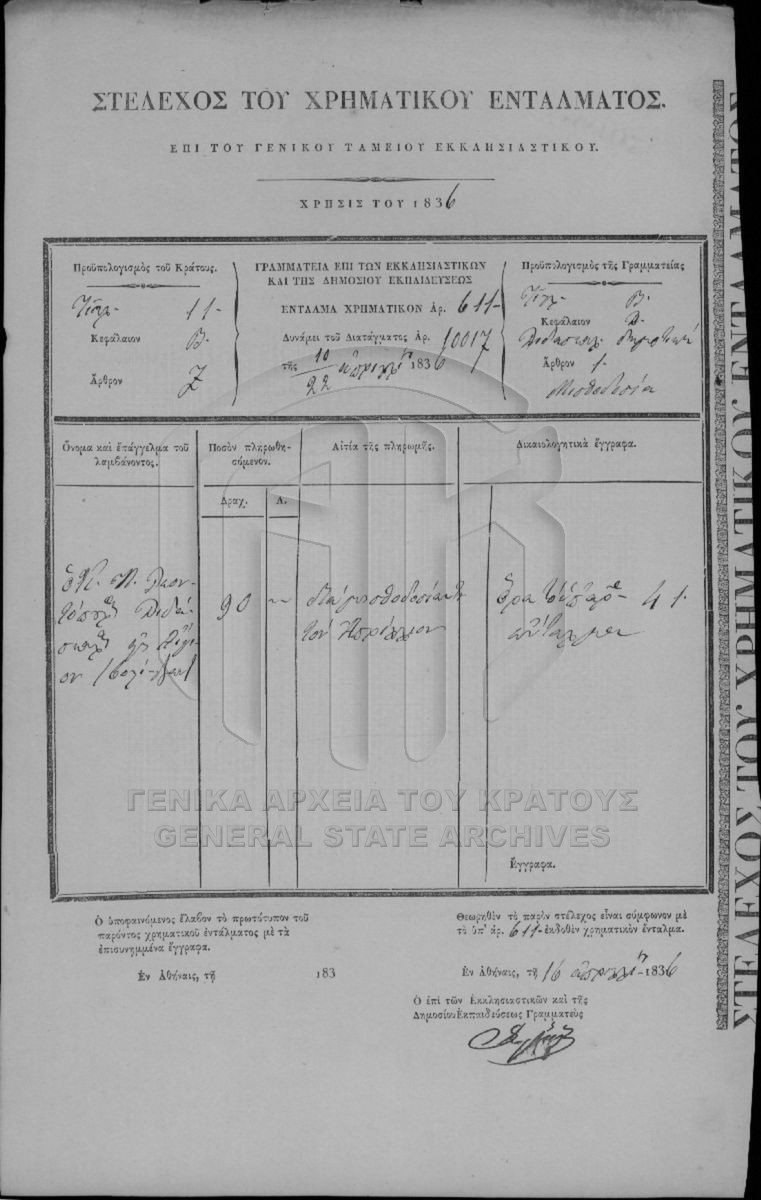 ΣΤΕΛΕΧΟΣ ΤΟΥ ΧΡΗΜΑΤΙΚΟΥ ΕΝΤΑΛΜΑΤΟΣ.
ΕΠΙ ΤΟΥ ΓΕΝΙΚΟΥ ΤΑΜΕΙΟΥ ΕΚΚΛΗΣΙΑΣΤΙΚΟΥ.
ΧΡΗΣΙΣ ΤΟΥ 1836
Προϋπολογισμὸς τοῦ Κράτους.
Τίτλ. 11-
Κεφάλαιον Β.
Ἄρθρον Ζ
ΓΡΑΜΜΑΤΕΙΑ ΕΠΙ ΤΩΝ ΕΚΚΛΗΣΙΑΣΤΙΚΩΝ
ΚΑΙ ΤΗΣ ΔΗΜΟΣΙΟΥ ΕΚΠΑΙΔΕΥΣΕΩΣ
ΕΝΤΑΛΜΑ ΧΡΗΜΑΤΙΚΟΝ Ἀρ. 611-
Δυνάμει τοῦ Διατάγματος Ἀρ. 10017
τῆς 10/22 ἀπριλλίου 1836
Προϋπολογισμὸς τῆς Γραμματείας
Τίτλ. Β.
Κεφάλαιον Δ.
Ἄρθρον 1.
Μισθοδοσία
Ὄνομα καὶ ἐπάγγελμα τοῦ
λαμβάνοντος.
Ποσὸν πληρωθη-
σόμενον.
Δραχ. Λ.
Αἰτία τῆς πληρωμῆς.
Δικαιολογητικὰ ἔγγραφα.
90
τὸν Ἀπρίλλιον
41.
Ἔγγραφα.
Ὁ ὑποφαινόμενος ἔλαβον τὸ πρωτότυπον τοῦ
παρόντος χρηματικοῦ ἐντάλματος μὲ τὰ
ἐπισυνημμένα ἔγγραφα.
Ἐν Ἀθήναις, τῇ 183
Θεωρηθὲν τὸ παρὸν στέλεχος εἶναι σύμφωνον μὲ
τὸ ὑπ' ἀρ. 611- ἐκδοθὲν χρηματικὸν ἔνταλμα.
Ἐν Ἀθήναις, τῇ 16 ἀπριλλίου 1836
Ὁ ἐπὶ τῶν Ἐκκλησιαστικῶν καὶ τῆς
Δημοσίου Ἐκπαιδεύσεως Γραμματεὺς
ΣΤΕΛΕΧΟΣ ΤΟΥ ΧΡΗΜΑΤΙΚΟΥ ΕΝΤΑΛΜΑΤΟΣ
ΓΕΝΙΚΑ ΑΡΧΕΙΑ ΤΟΥ ΚΡΑΤΟΥΣ
GENERAL STATE ARCHIVES